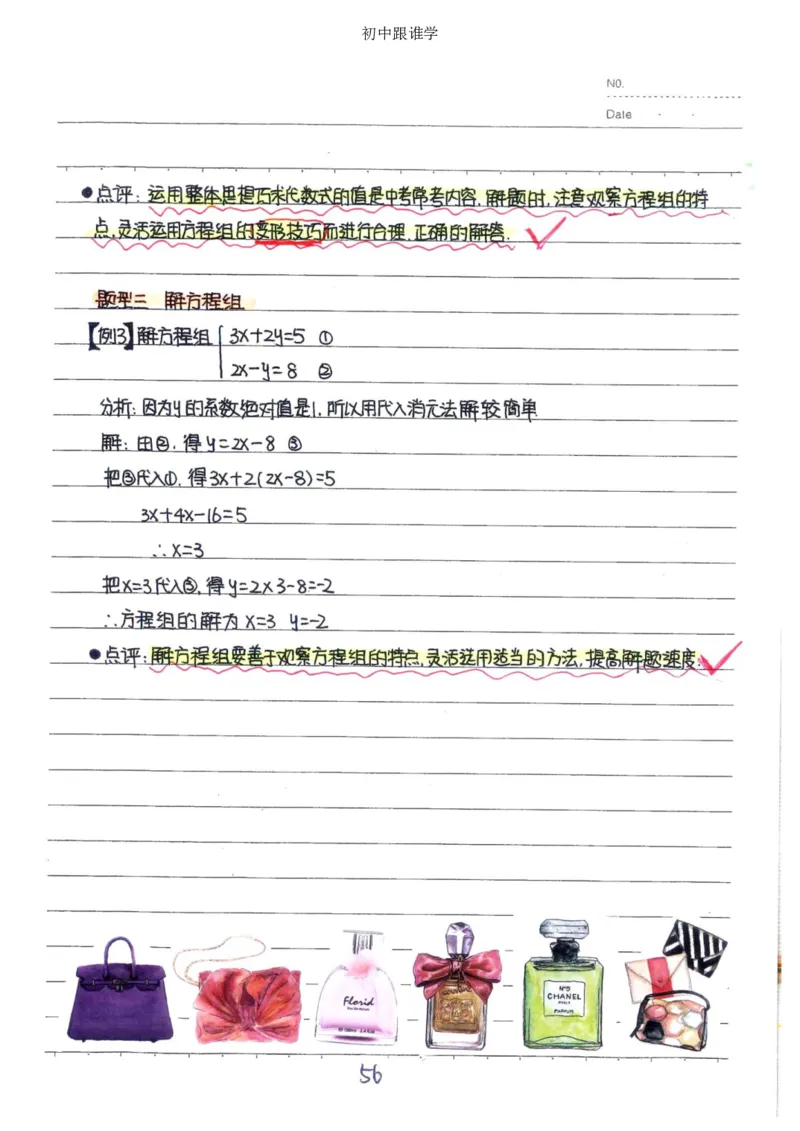 初中跟谁学
NO.
Date · ·
●点评：运用整体思想巧求代数式的值是中考常考内容.解题时,注意观察方程组的特
点,灵活运用方程组的变形技巧而进行合理,正确的解答.
题型三 解方程组
【例3】解方程组 { 3x+2y=5 ①
2x-y=8 ②
分析:因为y的系数绝对值是1,所以用代入消元法解较简单
解:由②,得y=2x-8 ③
把③代入①,得3x+2(2x-8)=5
3x+4x-16=5
∴x=3
把x=3代入③,得y=2×3-8=-2
∴方程组的解为x=3 y=-2
●点评:解方程组要善于观察方程组的特点,灵活选用适当的方法,提高解题速度.
Florid
N°5
CHANEL
PARIS
PARFUM
56